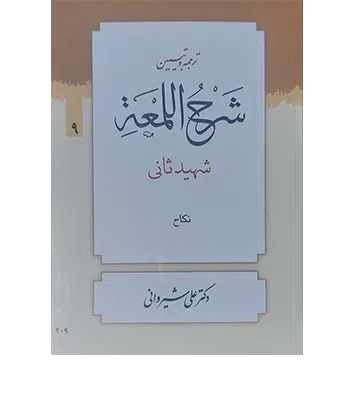 ترجمه و تبیین
شَرْحُ اللُّمْعَةِ
۹
شهید ثانی
نکاح
دکتر علی شیروانی
۲۰۹